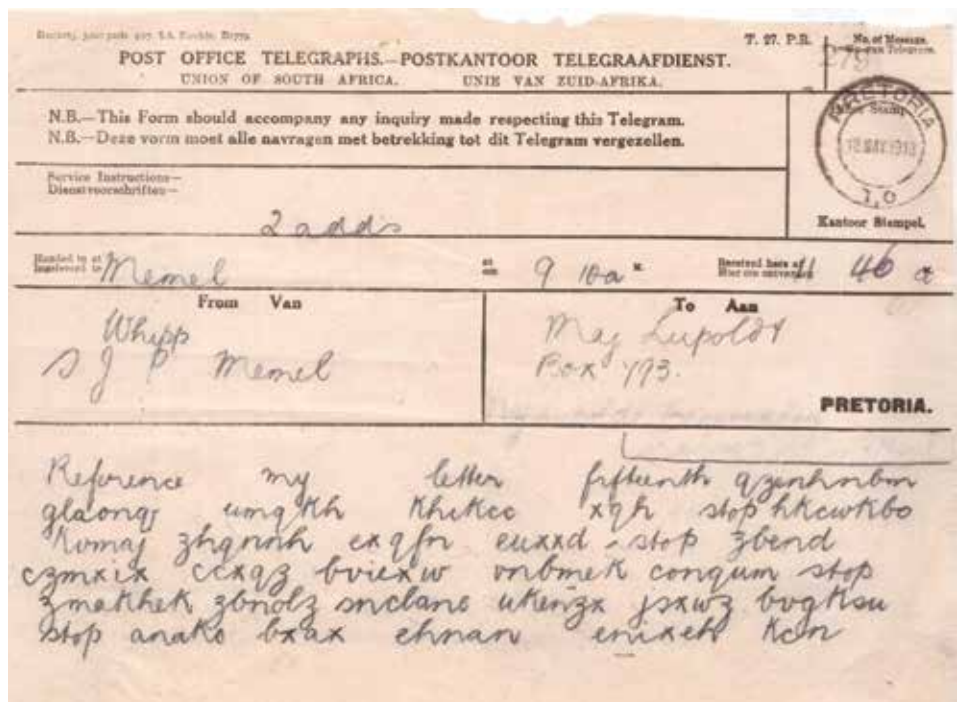 T. 27. P.R.
No. of Message.
279
POST OFFICE TELEGRAPHS.—POSTKANTOOR TELEGRAAFDIENST.
UNION OF SOUTH AFRICA. UNIE VAN ZUID-AFRIKA.
N.B.—This Form should accompany any inquiry made respecting this Telegram.
N.B.—Deze vorm moet alle navragen met betrekking tot dit Telegram vergezellen.
PRETORIA
Stamp
T.O
Kantoor Stempel.
Service Instructions—
Dienstvoorschriften—
2 adds
Handed in at Memel at 9 10a M. Received here at 11 46 a
From Van
To Aan
Whipp
J P Memel
Maj Leipoldt
Box 793.
PRETORIA.
Reference my letter fifteenth qzenhnbm
glaonqr umqkh khekcc xqh stop hkcwkbo
kvmaj zhgnnh exqfn euxxd stop zbend
czmxix ccxqz bviexw onbmek conqum stop
zmakhek zbnolz snclano ukenzx jsxwz bvgksu
stop anako bxax ehnan enixek kcen